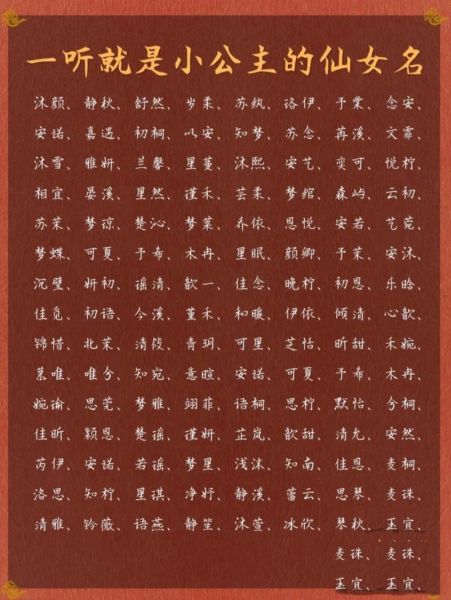 一听就是小公主的仙女名
沐颜、静秋、舒然、岁柔、苏纨、洛伊、予棠、念安、
安诺、嘉遇、初桐、以安、知梦、苏念、苒溪、文霏、
沐雪、雅妍、兰馨、星蔓、沐熙、安艺、奕可、悦柠、
相宜、晏溪、星然、谨禾、芸柔、梦绾、森屿、云初、
苏茉、梦谅、楚沁、梦葉、乔依、恩悦、安若、艺菀、
梦蝶、可夏、予希、木冉、星眠、颜卿、予茉、安沐、
沉璧、妍初、谣清、歆一、佳念、晚柠、初恩、乐晗、
佳觅、初语、今溪、堇禾、和暖、伊依、倾清、心歆、
锦惜、北茉、清葭、青玥、可星、芝恬、昕甜、禾婉、
慕唯、唯兮、知宛、意暄、安诺、可夏、予希、木冉、
婉谕、思莞、梦雅、翊菲、语桐、思柠、默怡、兮桐、
佳昕、颖恩、楚谣、谨妍、芷岚、歆甜、清允、安然、
芮伊、安诺、若谣、梦星、浅沫、知南、佳恩、麦桐、
洛思、知柠、星琪、净妤、静溪、蕾云、思琴、麦珠、
清雅、铃薇、语燕、静笙、沐萱、冰欣、琴秋、玉宜、
麦珠、麦珠、
玉宜、玉宜、